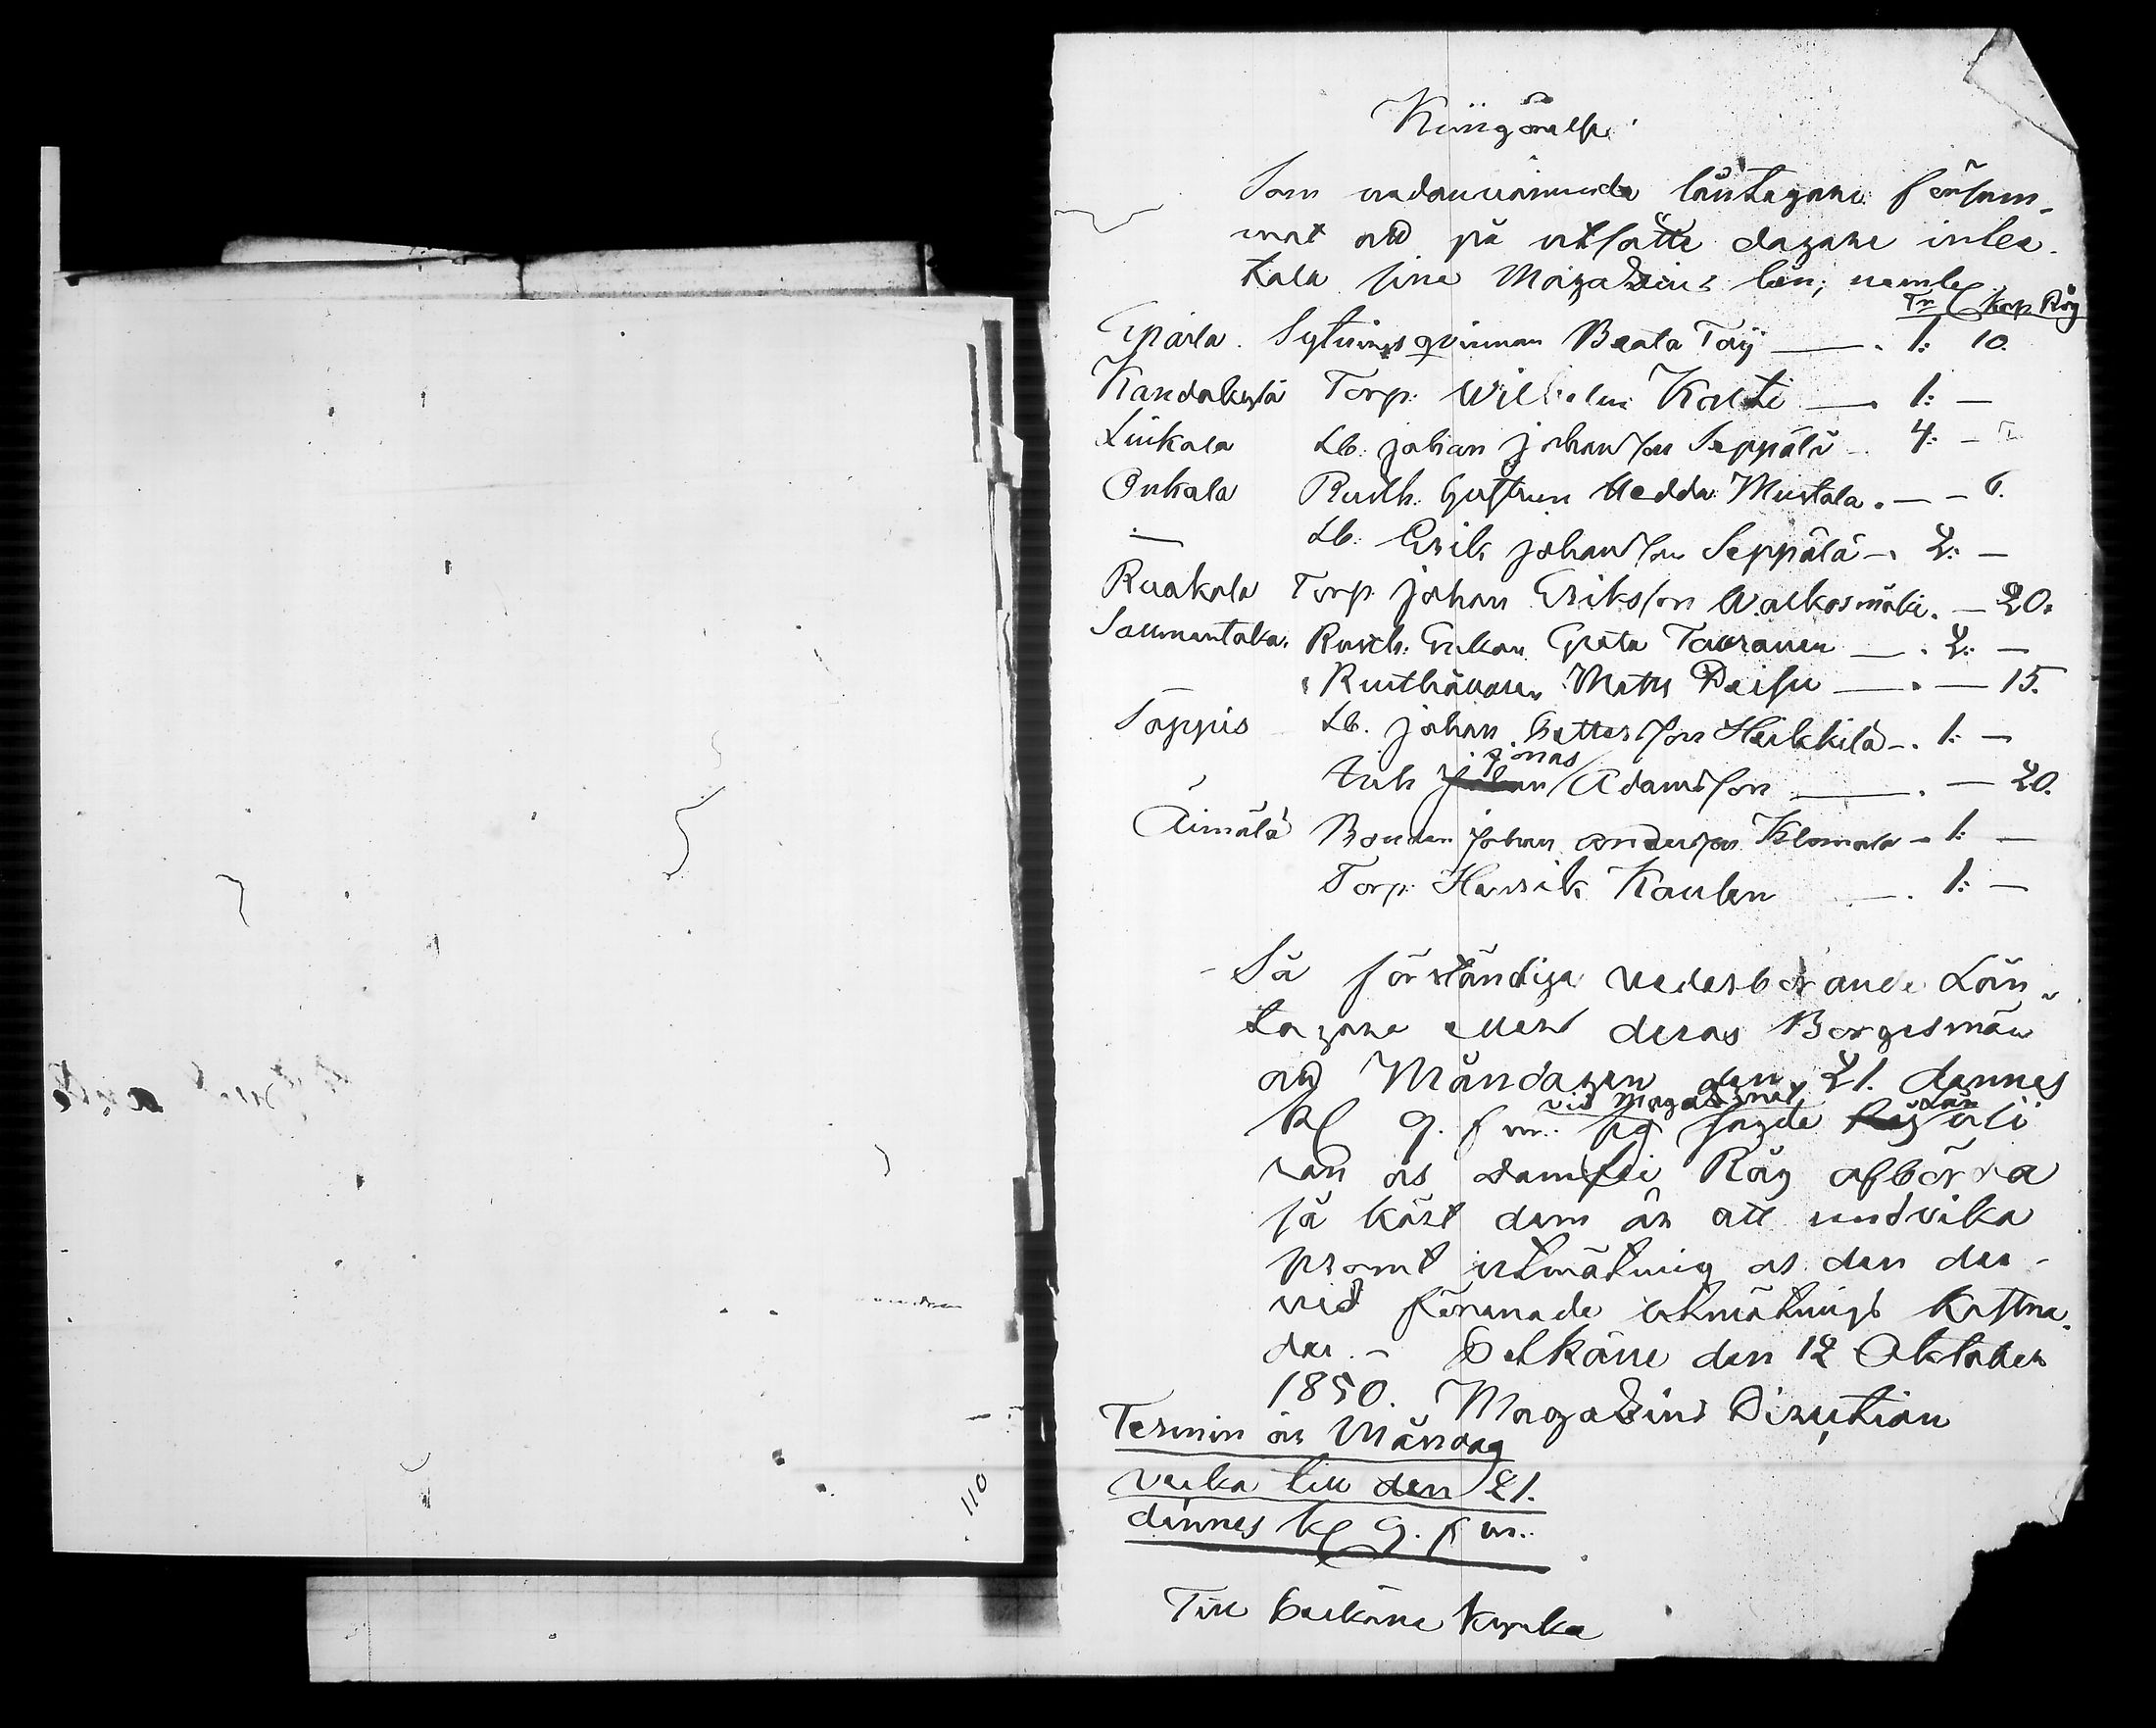 Kungörelse
Som nedannämnde låntagare försum-
mat att på utsatte dagare inbe-
tala sine Magazins lån, neml.
Tr Kap Råg
Epaala. Sytningsqvinnan Beata Töÿ —. 1: 10.
Kandokylä Torp. Wilhelm Kalti —. 1: —
Liukala Lb. Johan Johansson Seppälä — 4: —
Onkala Rusth. Gustava Hedda Mustala. — — 6.
— Lb. Erik Johansson Seppälä —. 2: —
Ruokola Torp. Johan Eriksson Walkosmäki. — 20.
Salmentaka. Rusth. Enkan Greta Tavranen —. 2: —
Rusthållaren Mats —. — 15.
Sappis Lb. Johan Heikkilä —. 1: —
Jonas
Inh Johan Adamsson —. — 20.
Äimälä Bonden Johan Andersson Klomola — 1: —
Torp. Henrik Kaulen —. 1: —
Så förständiga vederbörande Lån-
tagare eller deras Borgesmän
att Måndagen den 21. dennes
vid Magazinet
Kl 9. f m. sagde Lån
samfri Råg afbörda
så kärt dem är att undvika
promt utmätning as den der-
vid förenade utmätnings kostna-
der. — Pelkäne den 12 Oktober
1850. Magazins Direction
Termin är Måndag
veika till den 21.
dennes kl 9. f m.
Till Pelkäne Kyrka
110